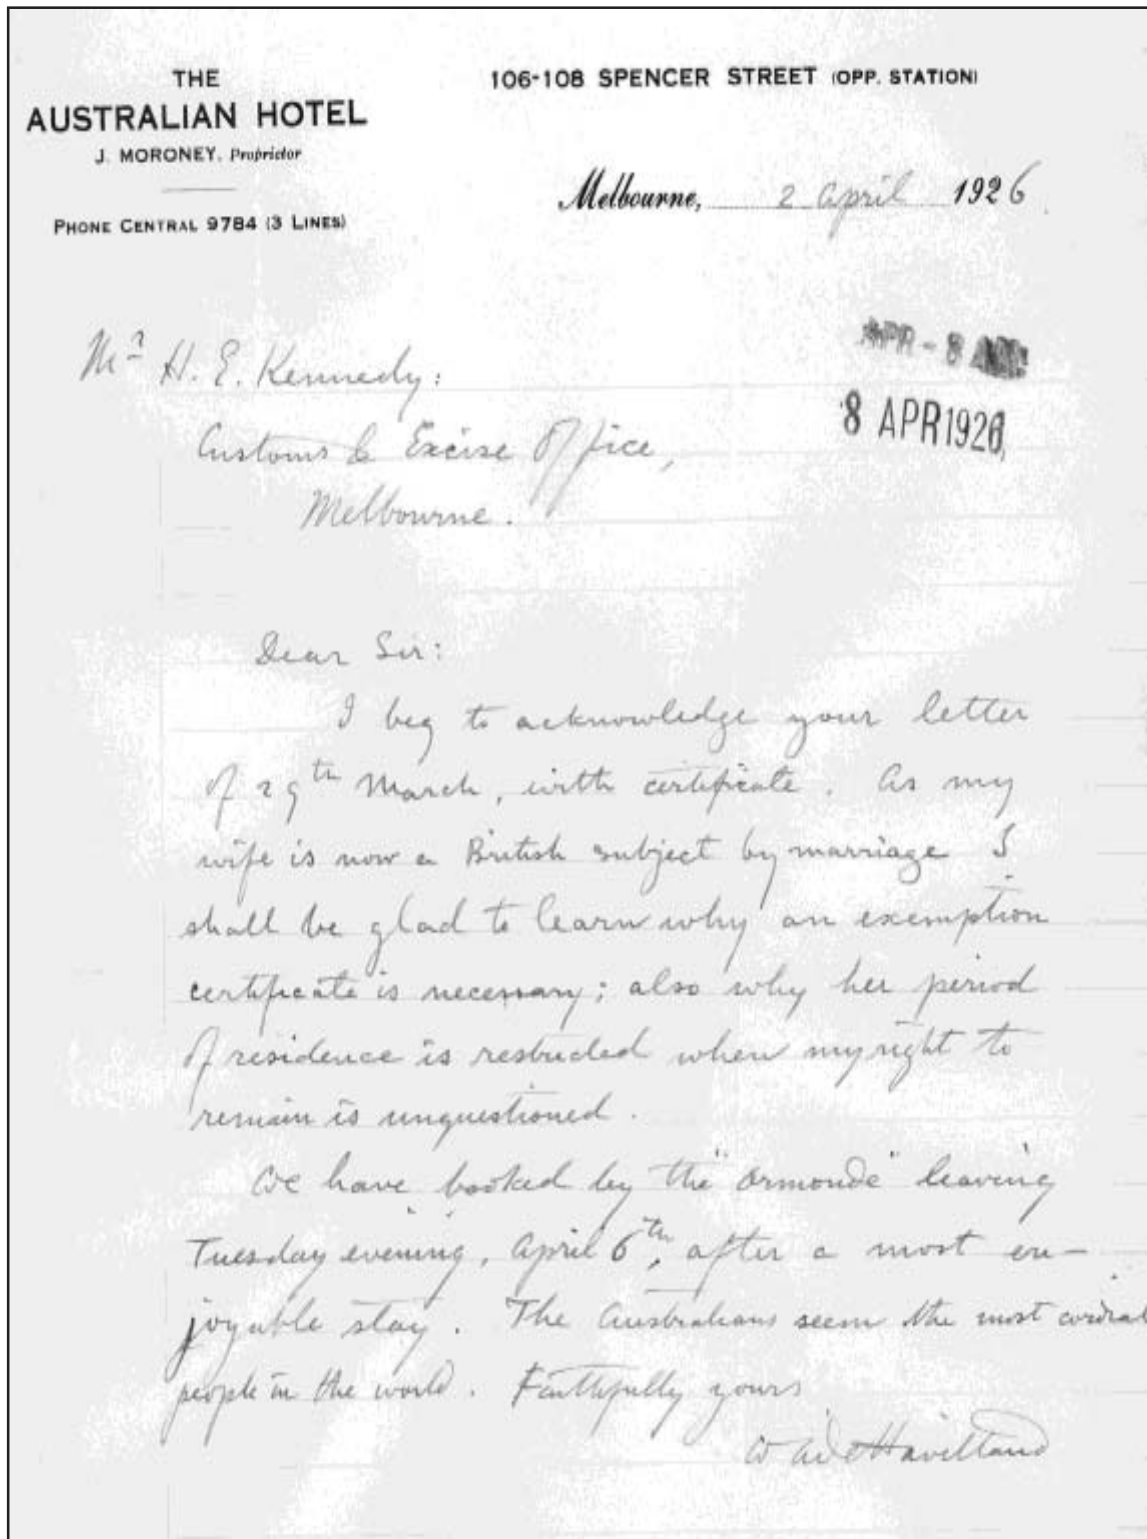 THE
AUSTRALIAN HOTEL
J. MORONEY, Proprietor
PHONE CENTRAL 9784 (3 LINES)
106-108 SPENCER STREET (OPP. STATION)
Melbourne, 2 April 1926
APR - 8
8 APR 1926
Mr H. E. Kennedy:
Customs & Excise Office,
Melbourne.
Dear Sir:
I beg to acknowledge your letter
of 29th March, with certificate. As my
wife is now a British subject by marriage I
shall be glad to learn why an exemption
certificate is necessary; also why her period
of residence is restricted when my right to
remain is unquestioned.
We have booked by the "Ormonde" leaving
Tuesday evening, April 6th, after a most en-
joyable stay. The Australians seem the most cordial
people in the world. Faithfully yours
W A de Havilland